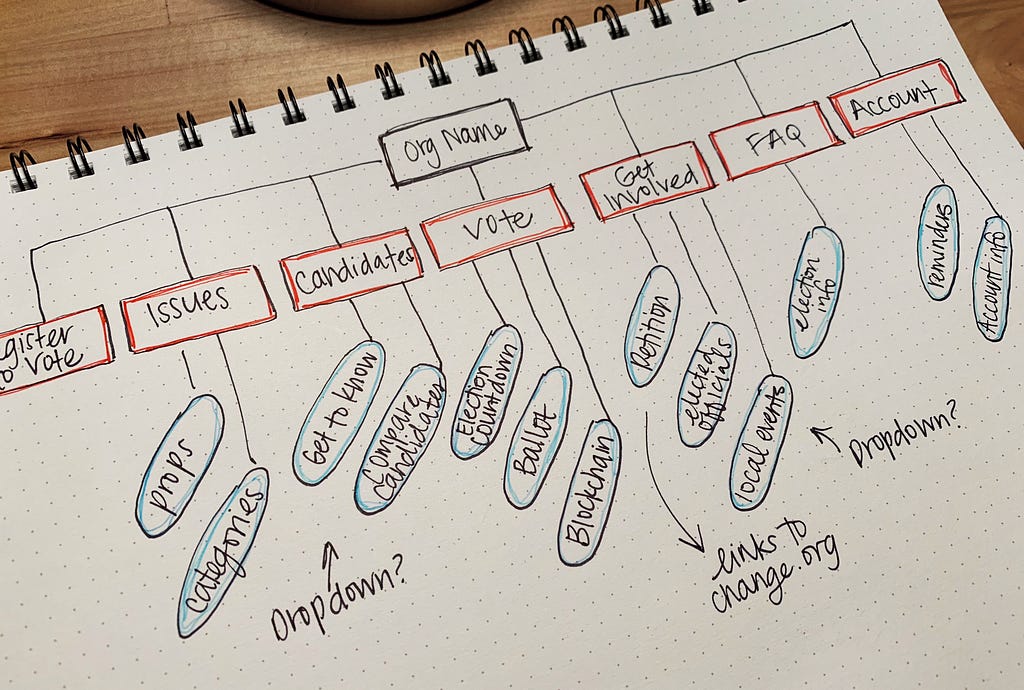 Org Name
Account
FAQ
Get
Involved
Vote
Candidates
Issues
gister
o Vote
reminders
Account info
election
info
Petition
elected
officials
local events
Election
Countdown
Ballot
Blockchain
Get to know
Compare
Candidates
props
categories
Dropdown?
Dropdown?
links to
change.org